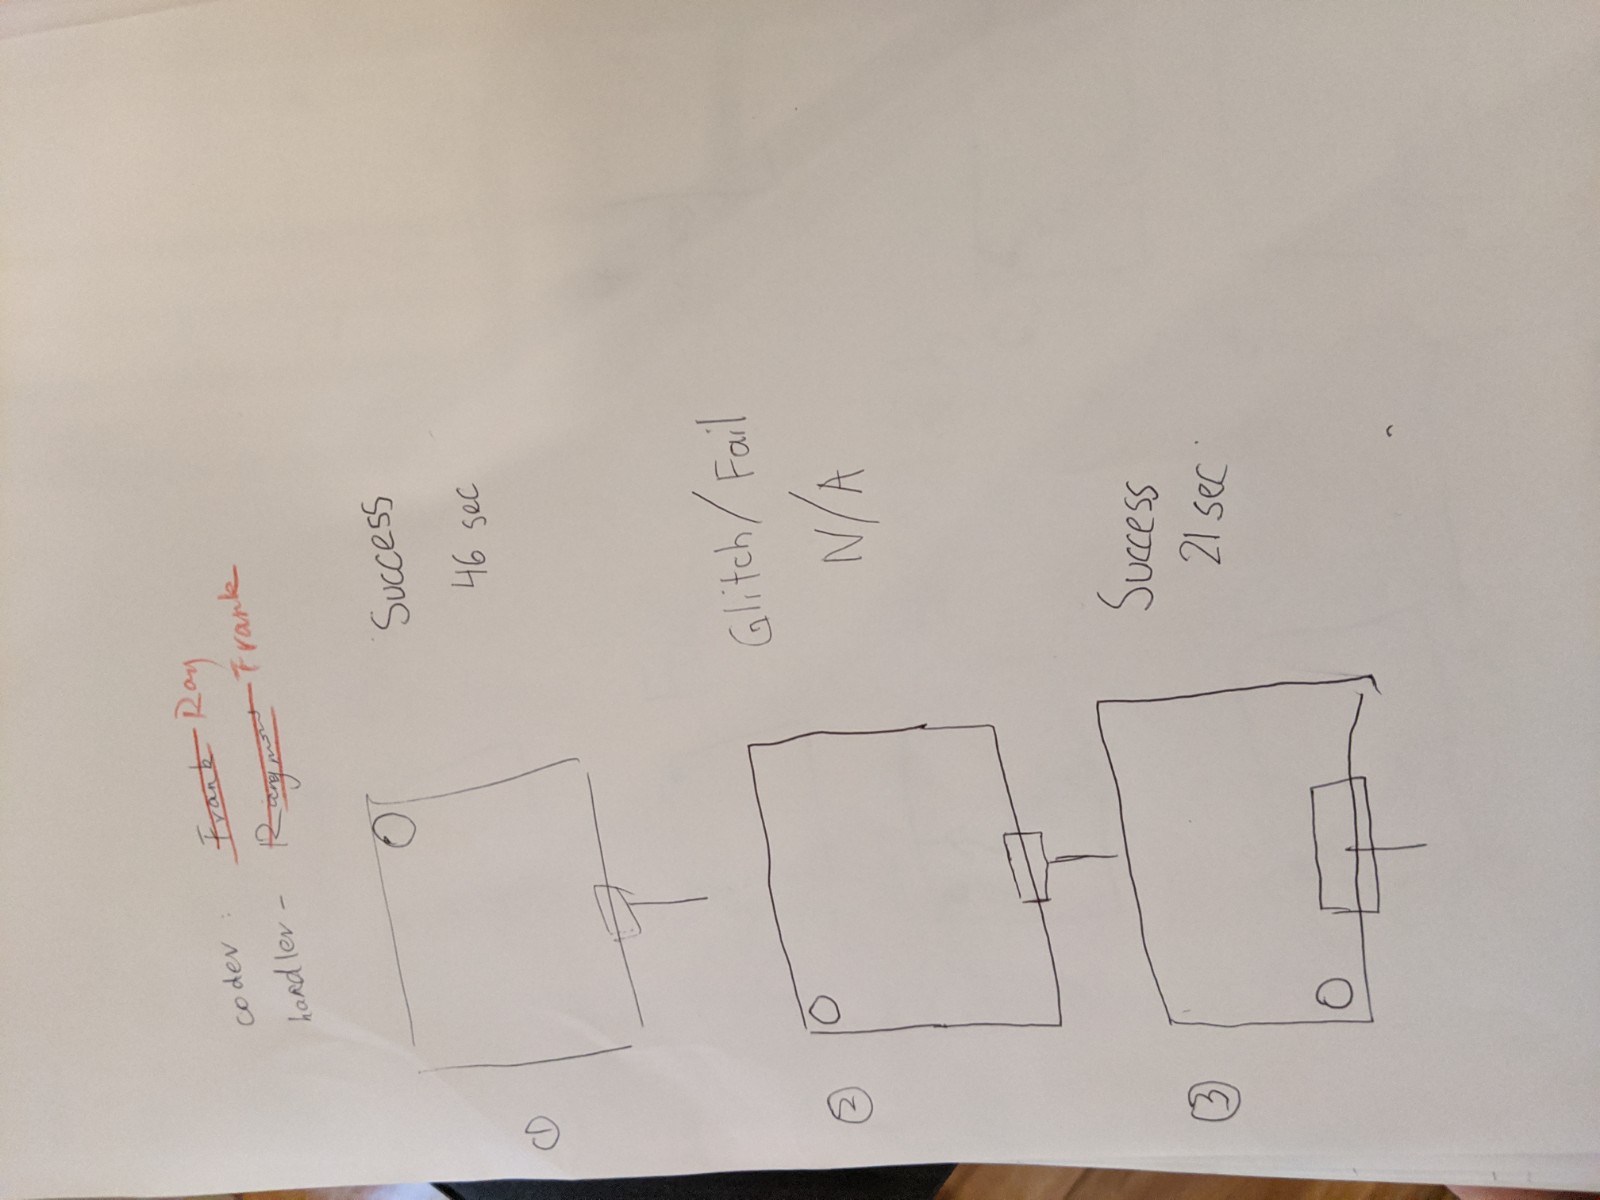 coder: Frank Ray
handler - Raymond Frank
① Success
46 sec
② Glitch/Fail
N/A
③ Success
21 sec